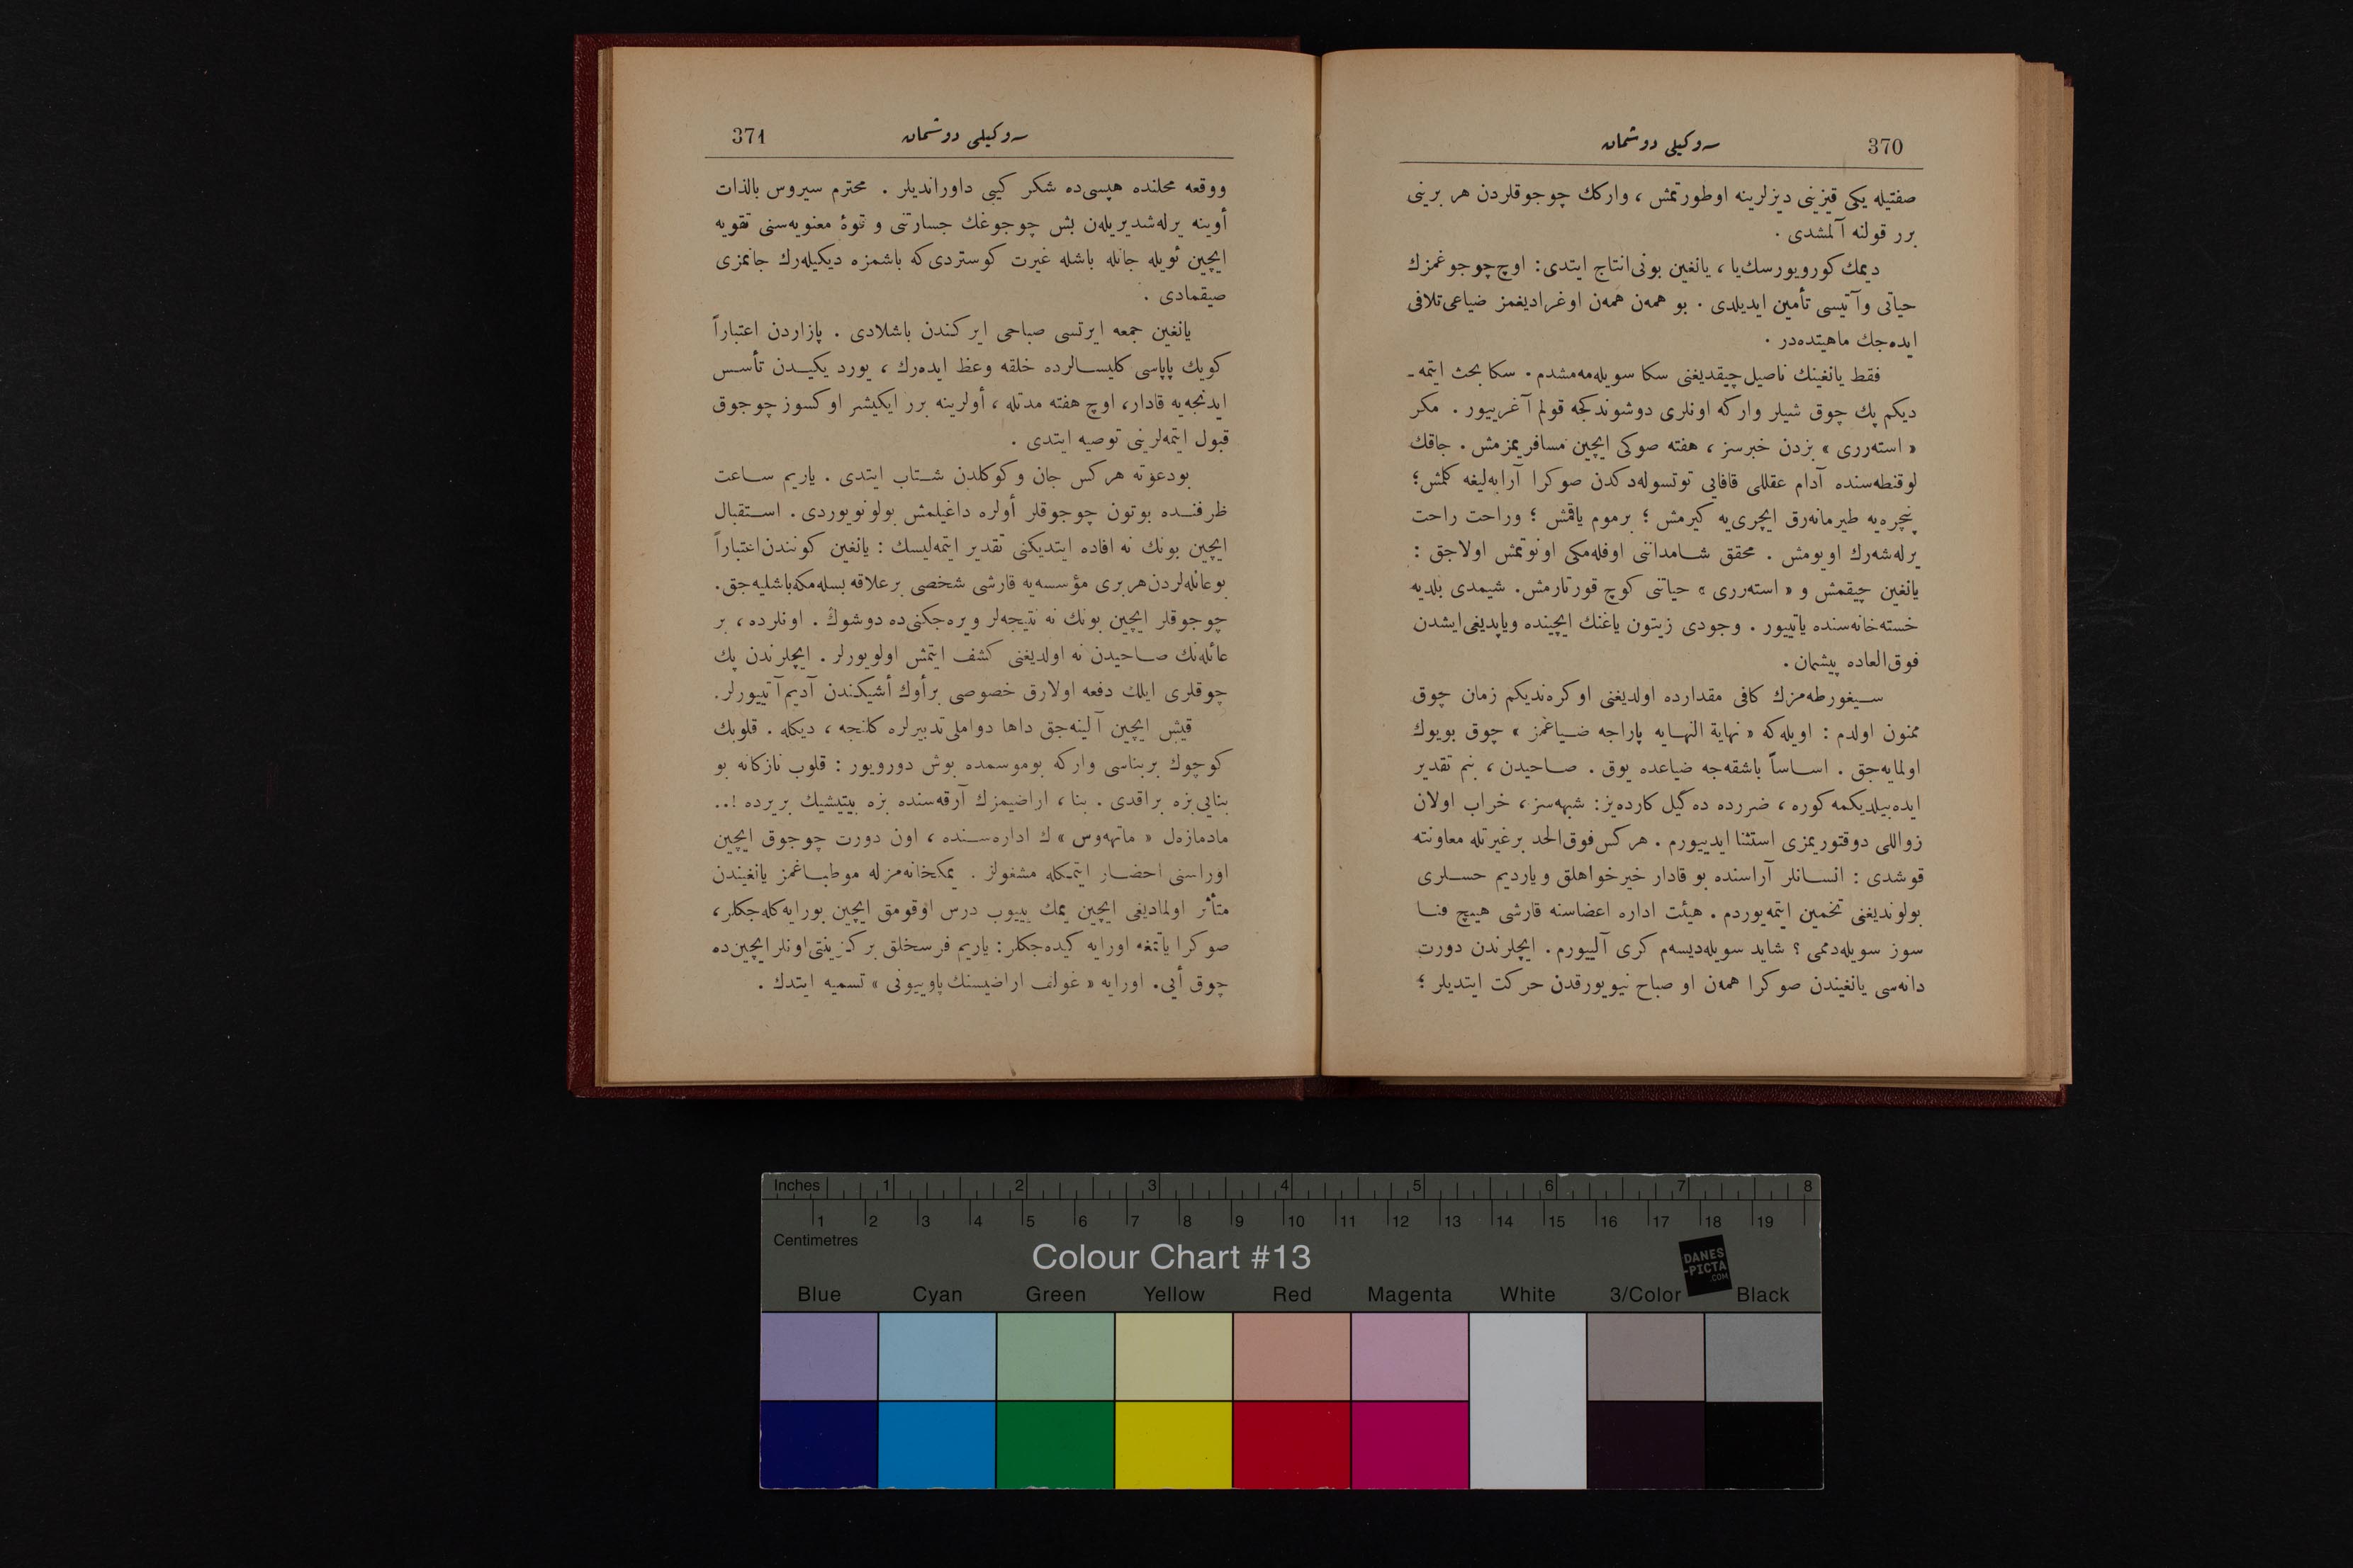 370
سه‌وكیلی دوشمان
صفتیله یكی قیزینی دیزلرینه اوطورتمش ، وارکك چوجوقلردن هر برینی
برر قولنه آلمشدی .
دیمك كورویورسك‌یا ، یانغین بونی انتاج ایتدی : اوچ چوجوغمزك
حیاتی وآتیسی تأمین ایدیلدی . بو همه‌ن همه‌ن اوغرادیغمز ضیاعی تلافی
ایده‌جك ماهیتده‌در .
فقط یانغینك ناصیل چیقدیغنی سكا سویله‌مه‌مشدم . سكا بحث ایتمه ـ
دیكم پك چوق شیلر واركه اونلری دوشوندكجه قولم آغرییور . مكر
« استه‌رری » بزدن خبرسز ، هفته صوكی ایچین مسافریمزمش . جاقك
لوقنطه‌سنده آدام عقللی قافایی توتسوله‌دكدن صوكرا آرابه‌لیغه كلمش ؛
پنجره‌یه طیرمانه‌رق ایچری‌یه كیرمش ؛ برموم یاقمش ؛ وراحت راحت
یرله‌شه‌رك اویومش . محقق شامداننی اوفله‌مكی اونوتمش اولاجق :
یانغین چیقمش و « استه‌رری » حیاتنی كوچ قورتارمش . شیمدی بلدیه
خسته‌خانه‌سنده یاتییور . وجودی زیتون یاغنك ایچینده ویاپدیغی ایشدن
فوق‌العاده پیشمان .
سیغورطه‌مزك كافی مقدارده اولدیغنی اوكره‌ندیكم زمان چوق
ممنون اولدم : اویله‌كه « نهایة النهایه پاراجه ضیاعمز » چوق بویوك
اولمایه‌جق . اساساً باشقه‌جه ضیاعده یوق . صاحیدن ، بنم تقدیر
ایده‌بیلدیكمه كوره ، ضررده ده‌گیل كارده‌یز : شبهه‌سز ، خراب اولان
زواللی دوقتوریمزی استثنا ایدییورم . هركس فوق‌الحد برغیرتله معاونته
قوشدی : انسانلر آراسنده بو قادار خیرخواهلق ویاردیم حسلری
بولوندیغنی تخمین ایتمه‌یوردم . هیئت اداره اعضاسنه قارشی هیچ فنا
سوز سویله‌دممی ؟ شاید سویله‌دیسه‌م كری آلییورم . ایچلرندن دورت
دانه‌سی یانغیندن صوكرا همه‌ن او صباح نیویورقدن حركت ایتدیلر ؛
371
سه‌وكیلی دوشمان
ووقعه محلنده هپسی‌ده شكر كیبی داوراندیلر . محترم سیروس بالذات
أوینه یرله‌شدیریله‌ن بش چوجوغك جسارتنی و قوهٔ معنویه‌سنی تقویه
ایچین ئویله جانله باشله غیرت كوستردی‌كه باشمزه دیكیله‌رك جانمزی
صیقمادی .
یانغین جمعه ایرتسی صباحی ایركندن باشلادی . پازاردن اعتباراً
كویك پاپاسی كلیسالرده خلقه وعظ ایده‌رك ، یورد یكیدن تأسس
ایدنجه‌یه قادار ، اوچ هفته مدتله ، أولرینه برر ایكیشر اوكسوز چوجوق
قبول ایتمه‌لرینی توصیه ایتدی .
بودعوته هركس جان وكوكلدن شتاب ایتدی . یاریم ساعت
ظرفنده بوتون چوجوقلر أولره داغیلمش بولونویوردی . استقبال
ایچین بونك نه افاده ایتدیكنی تقدیر ایتمه‌لیسك : یانغین كونندن اعتباراً
بوعائله‌لردن هربری مؤسسه‌یه قارشی شخصی برعلاقه بسله‌مكه باشلیه‌جق .
چوجوقلر ایچین بونك نه نتیجه‌لر ویره‌جكنی‌ده دوشوك . اونلرده ، بر
عائله‌نك صاحیدن نه اولدیغنی كشف ایتمش اولویورلر . ایچلرندن پك
چوقلری ایلك دفعه اولارق خصوصی برأوك أشیكندن آدیم آتییورلر .
قیش ایچین آلینه‌جق داها دواملی تدبیرلره كلنجه ، دیكله . قلوبك
كوچوك بربناسی واركه بوموسمده بوش دورویور : قلوب نازكانه بو
بنایی بزه براقدی . بنا ، اراضیمزك آرقه‌سنده بزه بیتیشیك بریرده !..
مادمازه‌ل « ماتهه‌وس » ك اداره‌سنده ، اون دورت چوجوق ایچین
اوراسنی احضار ایتمكله مشغولز . یمكخانه‌مزله موطباغمز یانغیندن
متأثر اولمادیغی ایچین یمك یییوب درس اوقومق ایچین بورایه كله‌جكلر ،
صوكرا یاتمغه اورایه كیده‌جكلر : یاریم فرسخلق بركزینتی اونلر ایچین‌ده
چوق أیی . اورایه « غولف اراضیسنك پاوییونی » تسمیه ایتدك .
Inches 1 2 3 4 5 6 7 8
1 2 3 4 5 6 7 8 9 10 11 12 13 14 15 16 17 18 19
Centimetres
Colour Chart #13
DANES
-PICTA
.COM
Blue Cyan Green Yellow Red Magenta White 3/Color Black